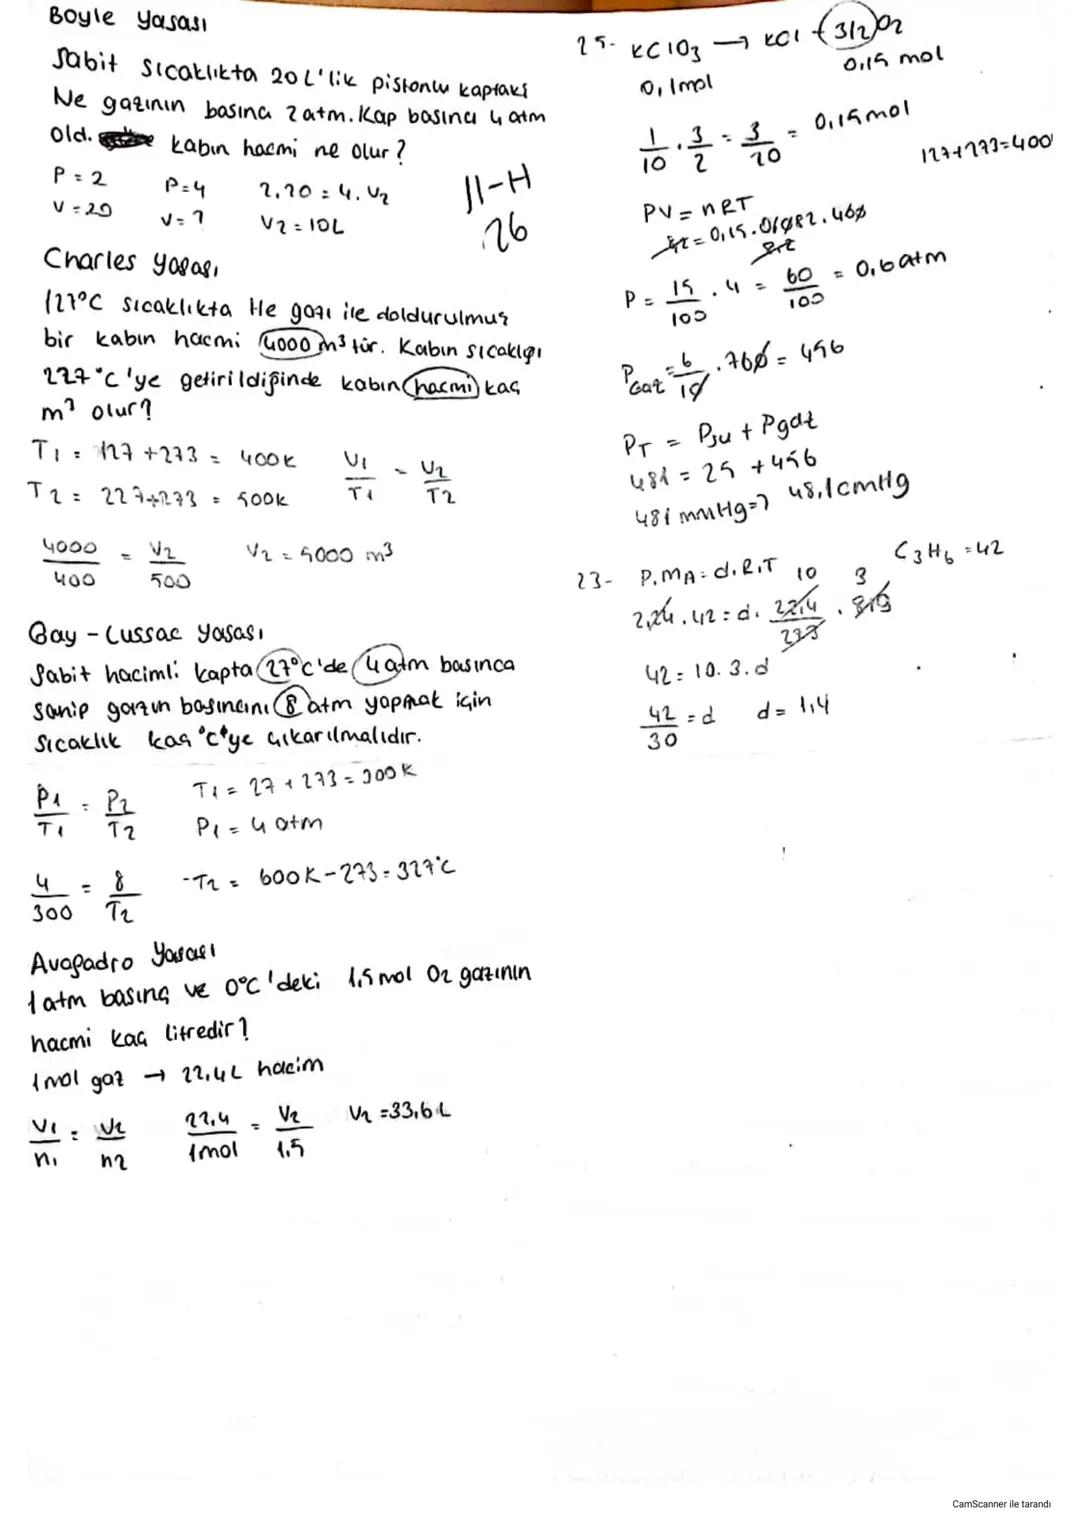 Boyle Yasası
Sabit sıcaklıkta 20 L'lik pistonlu kaptaki
Ne gazının basıncı 2 atm. Kap basıncı 4 atm
old. kabın hacmi ne olur?
P = 2 P = 4 2.20 = 4.V2
V = 20 V = ? V2 = 10L
11-H
26
Charles yasası
127°C sıcaklıkta He gazı ile doldurulmuş
bir kabın hacmi 4000 m³ tür. Kabın sıcaklığı
227°C'ye getirildiğinde kabın hacmi kaç
m³ olur?
T1 = 127 + 273 = 400K V1/T1 = V2/T2
T2 = 227+273 = 500K
4000/400 = V2/500 V2 = 5000 m³
Gay - Lussac yasası
Sabit hacimli kapta 27°C'de 4 atm basınca
sahip gazın basıncını 8 atm yapmak için
sıcaklık kaç °C'ye çıkarılmalıdır.
P1/T1 = P2/T2 T1 = 27 + 273 = 300K
P1 = 4 atm
4/300 = 8/T2 -T2 = 600K - 273 = 327°C
Avogadro Yasası
1 atm basınç ve 0°C'deki 1,5 mol O2 gazının
hacmi kaç litredir?
1 mol gaz → 22,4L hacim
V1/n1 = V2/n2 22,4/1mol = V2/1.5 V2 = 33,6 L
25- KClO3 → KCl + 3/2 O2
0,1mol 0,15 mol
1/10 . 3/2 = 3/20 = 0,15mol
127+273=400
PV = nRT
= 0,15.0,082.400
P = 15/100 . 4 = 60/100 = 0,6 atm
Pgaz = 6/10 . 760 = 456
PT = Psu + Pgaz
481 = 25 + 456
481 mmHg => 48,1cmHg
23- P.MA = d.R.T C3H6 = 42
10 3
2,24.42 = d. 22,4/273 . 819
42 = 10.3.d
42/30 = d d = 1,4
CamScanner ile tarandı